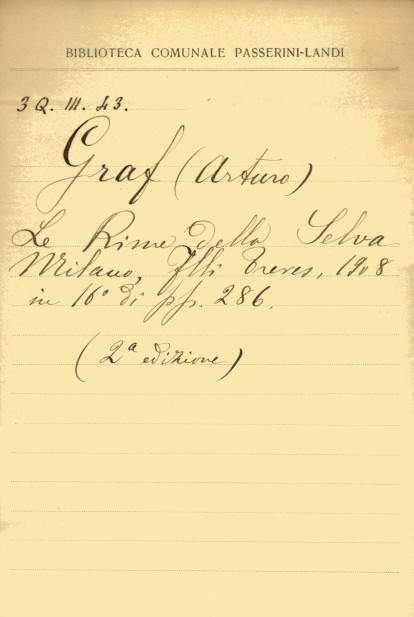 BIBLIOTECA COMUNALE PASSERINI-LANDI
3 Q. III. 43.
Graf (Arturo)
Le Rime della Selva
Milano, Flli Treves, 1908
in 16° di pp. 286.
(2ª edizione)